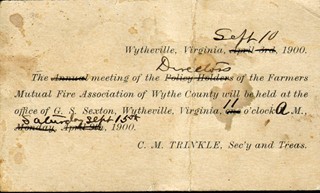 Sept 10
Wytheville, Virginia, April 3rd, 1900.
Directors
The Annual meeting of the Policy Holders of the Farmers
Mutual Fire Association of Wythe County will be held at
office of G. S. Sexton, Wytheville, Virginia, 11 o'clock A M.,
Saturday Sept 15th
Monday, April 1900.
C. M. TRINKLE, Sec'y and Treas.